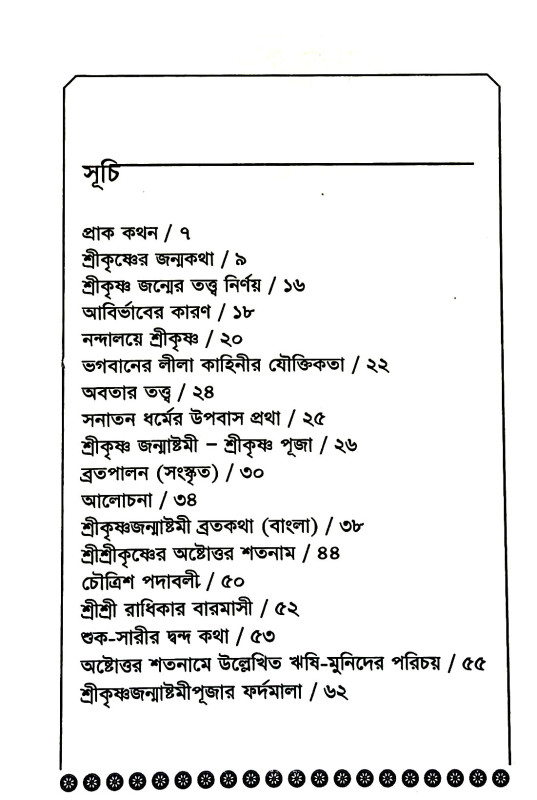 সূচি
প্রাক কথন / ৭
শ্রীকৃষ্ণের জন্মকথা / ৯
শ্রীকৃষ্ণ জন্মের তত্ত্ব নির্ণয় / ১৬
আবির্ভাবের কারণ / ১৮
নন্দালয়ে শ্রীকৃষ্ণ / ২০
ভগবানের লীলা কাহিনীর যৌক্তিকতা / ২২
অবতার তত্ত্ব / ২৪
সনাতন ধর্মের উপবাস প্রথা / ২৫
শ্রীকৃষ্ণ জন্মাষ্টমী – শ্রীকৃষ্ণ পূজা / ২৬
ব্রতপালন (সংস্কৃত) / ৩০
আলোচনা / ৩৪
শ্রীকৃষ্ণজন্মাষ্টমী ব্রতকথা (বাংলা) / ৩৮
শ্রীশ্রীকৃষ্ণের অষ্টোত্তর শতনাম / ৪৪
চৌত্রিশ পদাবলী / ৫০
শ্রীশ্রী রাধিকার বারমাসী / ৫২
শুক-সারীর দ্বন্দ কথা / ৫৩
অষ্টোত্তর শতনামে উল্লেখিত ঋষি-মুনিদের পরিচয় / ৫৫
শ্রীকৃষ্ণজন্মাষ্টমীপূজার ফর্দমালা / ৬২